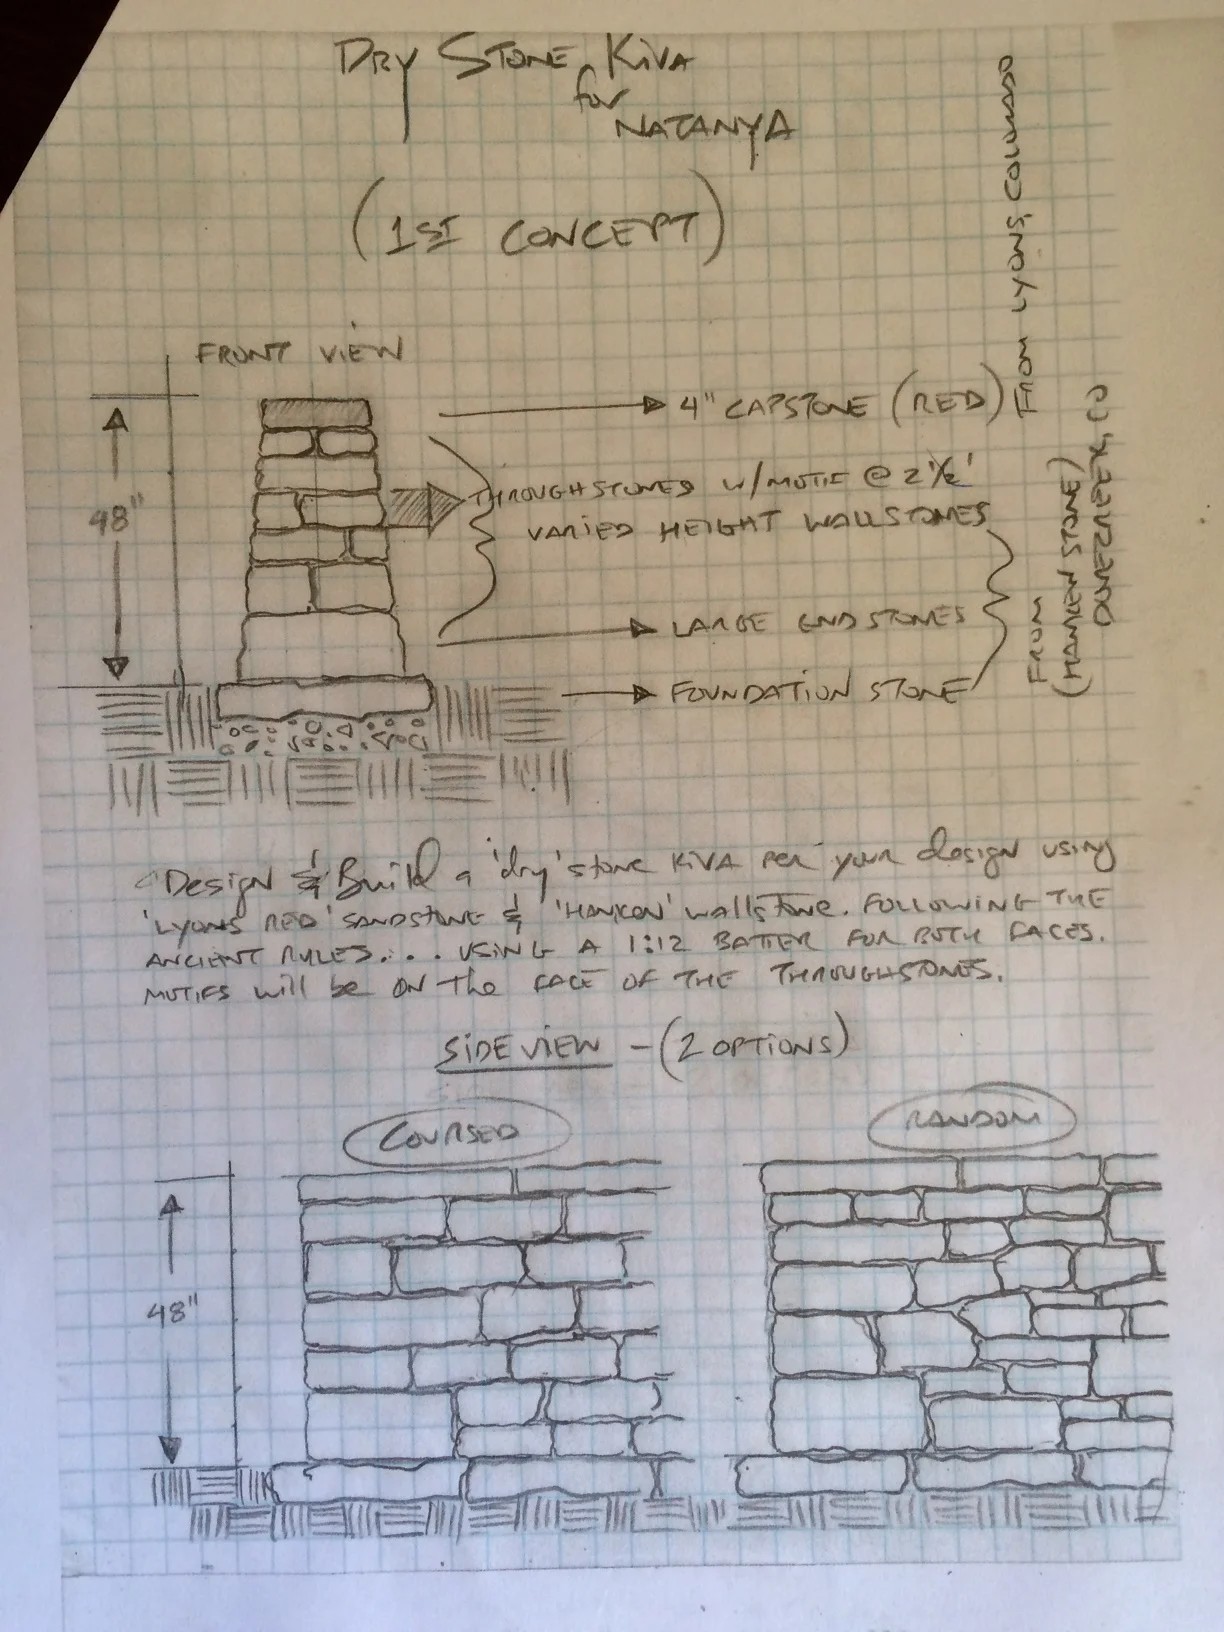 DRY STONE KIVA
for
NATANYA
(1ST CONCEPT)
FRONT VIEW
48"
4" CAPSTONE (RED)
FROM LYONS, COLORADO
THROUGHSTONES W/MOTIF @ 2 1/2'
VARIED HEIGHT WALLSTONES
LARGE ENDSTONES
FOUNDATION STONE
FROM
STONE)
CO
Design & Build a 'dry' stone KIVA per your design using
'LYONS RED' SANDSTONE & wallstone. FOLLOWING THE
ANCIENT RULES.... USING A 1:12 BATTER FOR BOTH FACES.
MOTIFS will be ON the FACE OF THE THROUGHSTONES.
SIDE VIEW - (2 OPTIONS)
COURSED
RANDOM
48"